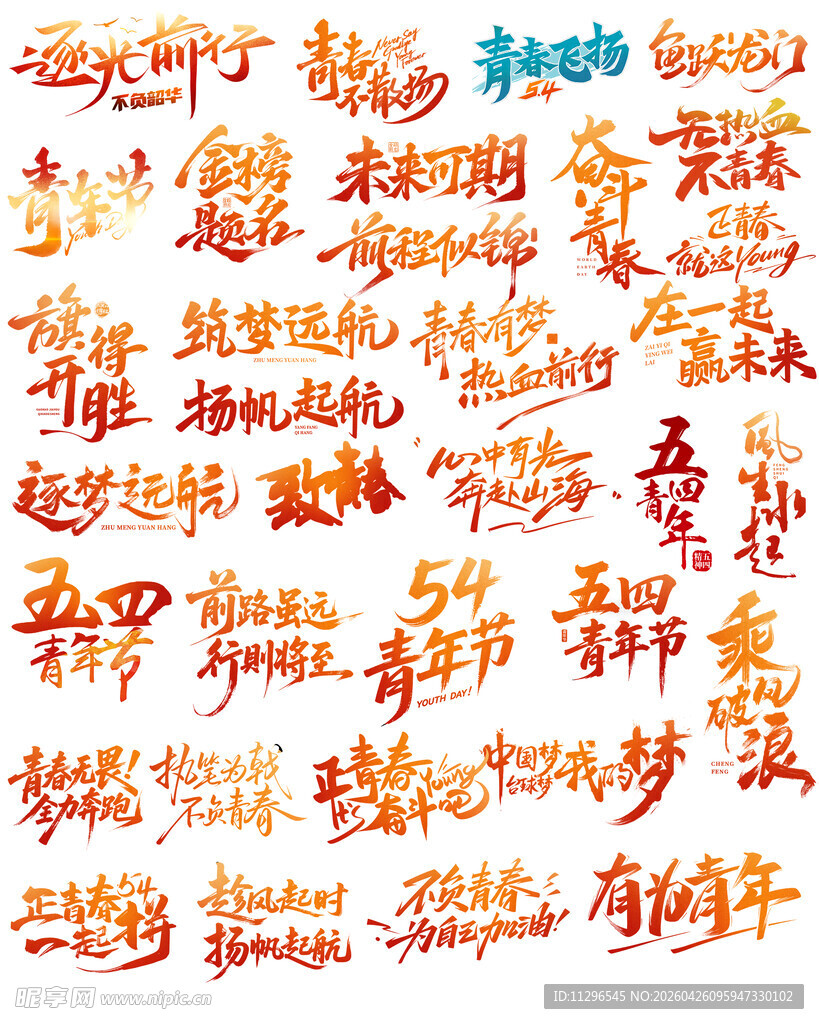 逐光前行
不负韶华
青春
不散场
Never Say
Goodbye
Young
Forever
青春飞扬
5.4
鱼跃龙门
青年节
Youth Day
金榜
题名
未来可期
前程似锦
奋斗
青春
WORLD
EARTH
DAY
无热血
不青春
正青春
就这Young
旗开
得胜
筑梦远航
ZHU MENG YUAN HANG
扬帆起航
YANG FAN
QI HANG
青春有梦
热血前行
在一起
赢未来
ZAI YI QI
YING WEI
LAI
逐梦远航
ZHU MENG YUAN HANG
致青春
心中有光
奔赴山海
五四
青年
五四
精神
風生水起
FENG
SHENG
SHUI
QI
五四
青年节
前路虽远
行则将至
54
青年节
YOUTH DAY!
五四
青年节
乘风
破浪
CHENG
FENG
青春无畏!
全力奔跑
执笔为戟
不负青春
正青春
It's Young
奋斗吧
中国梦
我的梦
正青春54
一起拼
趁风起时
扬帆起航
不负青春
为自己加油!
有为青年
昵享网 www.nipic.cn
ID:11296545 NO:20260426095947330102